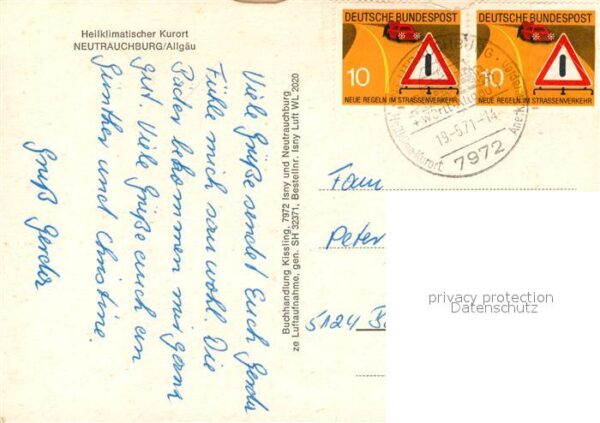 Heilklimatischer Kurort
NEUTRAUCHBURG/Allgäu
Viele Grüße sendet Euch Gerda
Fühle mich sau wohl. Die
Bäder bekommen mir ganz
gut. Viele Grüße auch an
Günther und Christine.
Gruß Gerda
Buchhandlung Kissling, 7972 Isny und Neutrauchburg
ze Luftaufnahme, gen. SH 32371, Bestellnr. Isny Luft WL 2020
DEUTSCHE BUNDESPOST
10
NEUE REGELN IM STRASSENVERKEHR
DEUTSCHE BUNDESPOST
10
NEUE REGELN IM STRASSENVERKEHR
19.5.71-14
7972
Fam
Peter
5124
privacy protection
Datenschutz